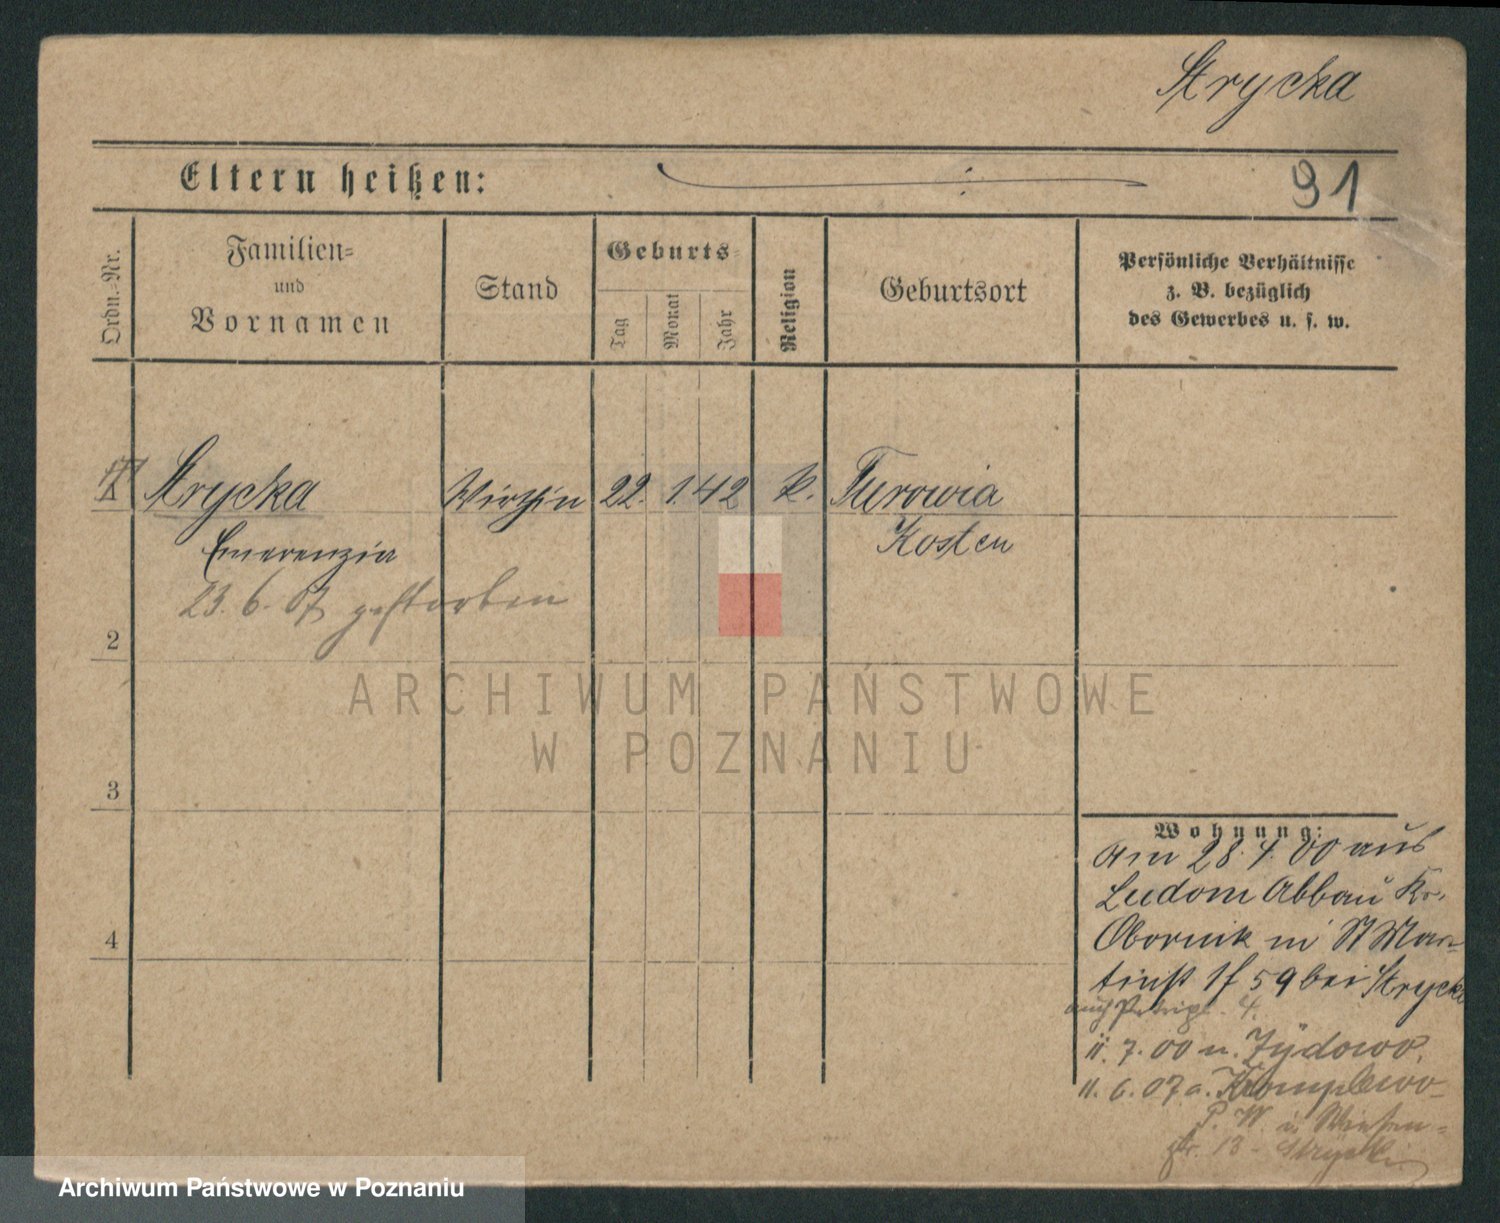 Strycka
Eltern heißen:
91
Ordn.-Nr.
Familien=
und
Vornamen
Stand
Geburts=
Tag
Monat
Jahr
Religion
Geburtsort
Persönliche Verhältnisse
z. B. bezüglich
des Gewerbes u. s. w.
1 Strycka Wirthin 22. 1. 42 k. Turowia
Emerenzia Kosten
23. 6. 07 gestorben
2
ARCHIWUM PAŃSTWOWE
W POZNANIU
3
Wohnung:
Am 28. 4. 00 aus
Ludom Abbau Kr.
Obornik in St Mar-
tinst 59 bei Strycki
4
auch 4.
11. 7. 00 n. Zydowo,
11. 6. 07 a.
P. W. in Wiesen-
str. 13 - Strycki
Archiwum Państwowe w Poznaniu